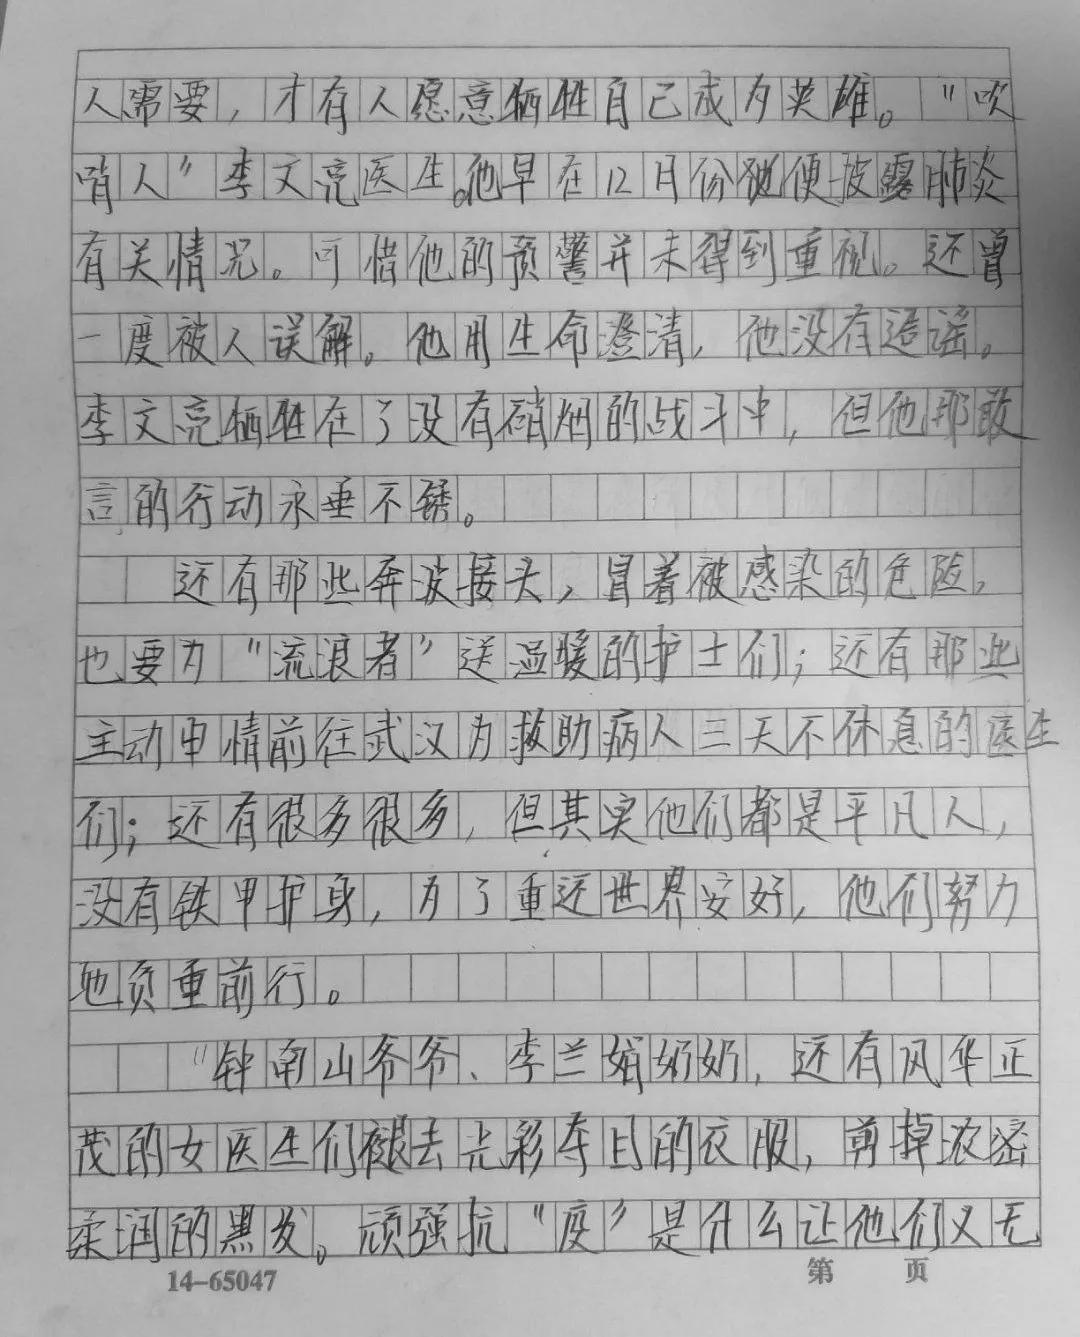 人需要，才有人愿意牺牲自己成为英雄。"吹
哨人"李文亮医生。他早在12月份便披露肺炎
有关情况。可惜他的预警并未得到重视。还曾
一度被人误解。他用生命澄清，他没有造谣。
李文亮牺牲在了没有硝烟的战斗中，但他那敢
言的行动永垂不锈。
还有那些奔波接头，冒着被感染的危险，
也要为"流浪者"送温暖的护士们；还有那些
主动申情前往武汉为救助病人三天不休息的医生
们；还有很多很多，但其实他们都是平凡人，
没有铁甲护身，为了重还世界安好，他们努力
地负重前行。
"钟南山爷爷、李兰娟奶奶，还有风华正
茂的女医生们褪去光彩夺目的衣服，剪掉浓密
柔润的黑发。顽强抗"疫"是什么让他们义无
14-65047 第 页